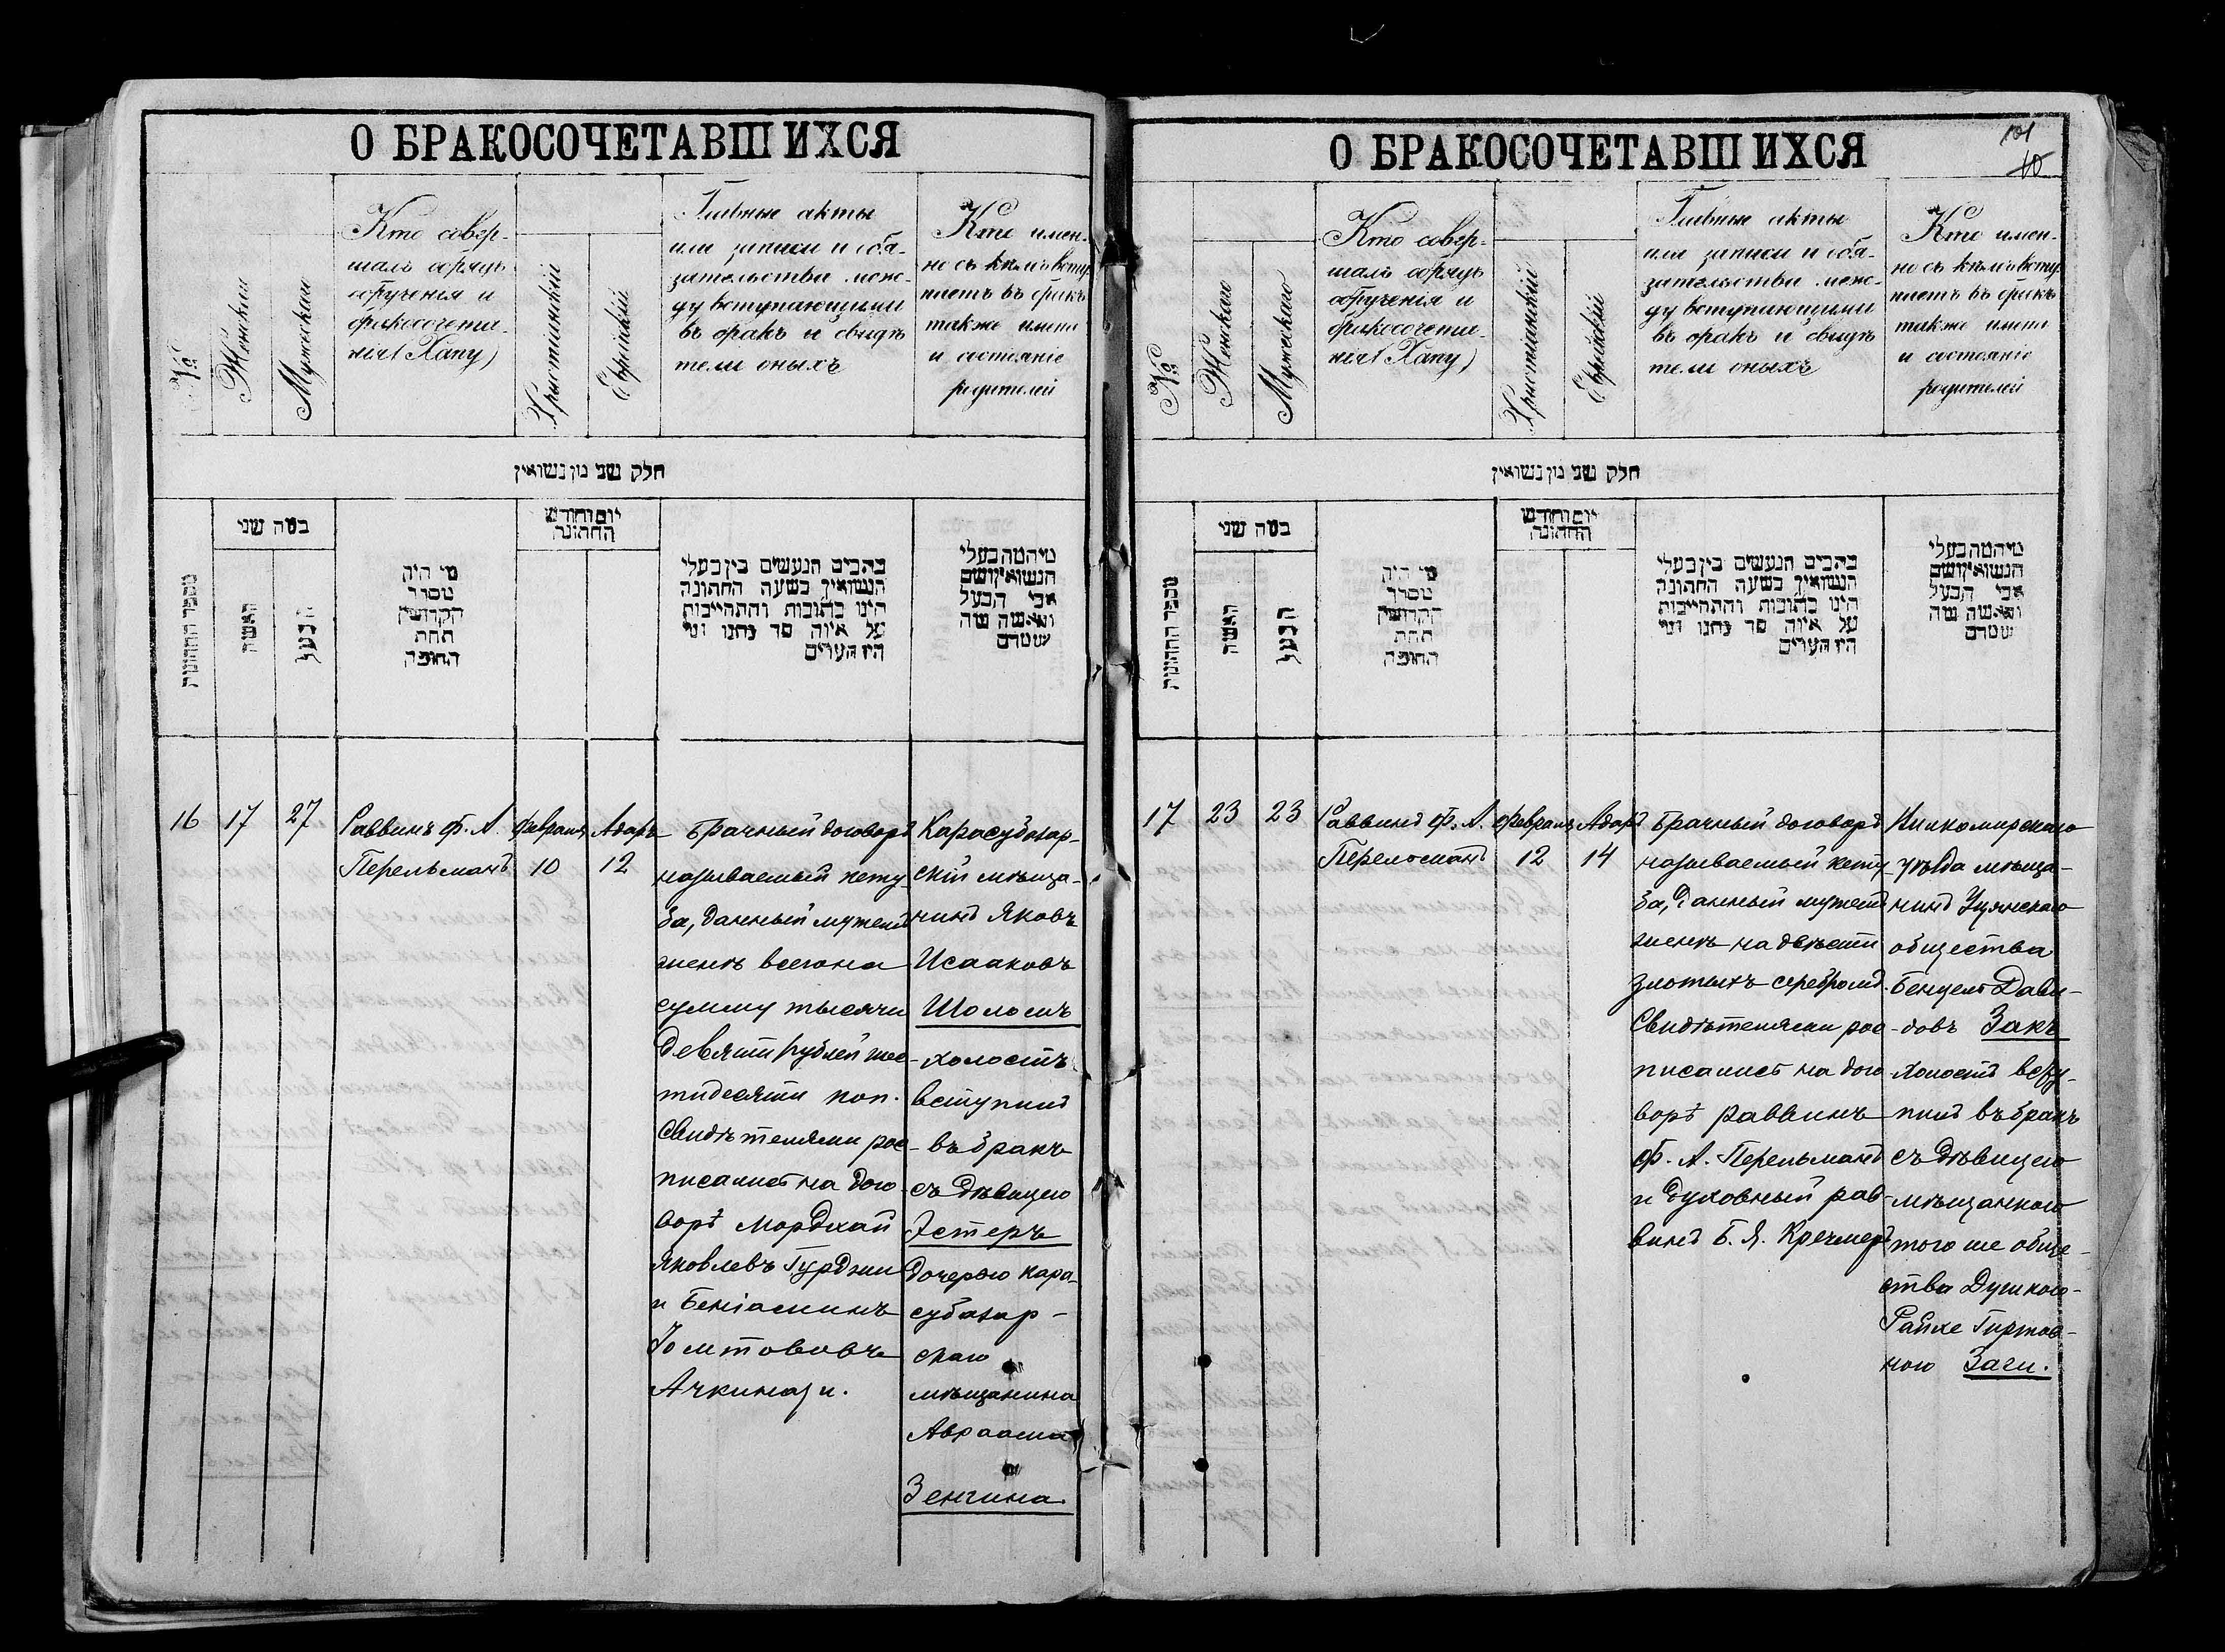 О БРАКОСОЧЕТАВШИХСЯ
№
Женская
Мужская
Кто совер-
шалъ обрядъ
обрученія и
бракосочета-
нія (Хапу)
Христіанскій
Еврейскій
Главные акты
или записи и обя-
зательства меж-
ду вступающими
въ бракъ и свидѣ
тели оныхъ
Кто имен-
но съ кѣмъ всту
паетъ въ бракъ
также имена
и состояніе
родителей
חלק שני מן נשואין
מספר החתונות
במה שני
האשה
הבעל
מי היה
מסדר
הקדושין
תחת
החופה
יום וחודש
החתונה
כתבים הנעשים בין בעלי
הנשואין בשעה החתונה
היינו כתובות והתחייבות
על איזה סך נתנו ומי
היו העדים
מי המה בעלי
הנשואין ושם
אבי הבעל
והאשה מה
שמדם
16
17
27
Раввинъ Ф. А.
Перельманъ
Февраля
10
Адаръ
12
Брачный договоръ
называемый кету
ба, данный мужемъ
женѣ всего на
сумму тысячи
девяти рублей шес-
тидесяти коп.
Свидѣтелями рос-
писались на дого
ворѣ Мордхай
Яковлевъ Гурджи
и Беніаминъ
Іомтововъ
Ачкинази.
Карасубазар-
скій мѣща-
нинъ Яковъ
Исааковъ
Шоломъ
холостъ
вступилъ
въ бракъ
съ дѣвицею
Эстеръ
дочерью Кара-
субазар-
скаго
мѣщанина
Авраама
Зенгина.
О БРАКОСОЧЕТАВШИХСЯ
101
10
№
Женскаго
Мужескаго
Кто совер-
шалъ обрядъ
обрученія и
бракосочета-
нія (Хапу)
Христіанскій
Еврейскій
Главные акты
или записи и обя-
зательства меж-
ду вступающими
въ бракъ и свидѣ
тели оныхъ
Кто имен-
но съ кѣмъ всту
паетъ въ бракъ
также имена
и состояніе
родителей
חלק שני מן נשואין
מספר החתונות
במה שני
האשה
הבעל
מי היה
מסדר
הקדושין
תחת
החופה
יום וחודש
החתונה
כתבים הנעשים בין בעלי
הנשואין בשעה החתונה
היינו כתובות והתחייבות
על איזה סך נתנו ומי
היו העדים
מי המה בעלי
הנשואין ושם
אבי הבעל
והאשה מה
שמדם
17
23
23
Раввинъ Ф. А.
Перельманъ
Февраля
12
Адаръ
14
Брачный договоръ
называемый кету
ба, данный мужемъ
женѣ на двѣсти
злотыхъ серебромъ.
Свидѣтелями рос-
писались на дого
ворѣ раввинъ
Ф. А. Перельманъ
и духовный рав-
винъ Б. Я. Кречмеръ
Вилкомирскаго
уѣзда мѣща-
нинъ Уцянскаго
общества
Бенцелъ Дави-
довъ Закъ
холостъ всту-
пилъ въ бракъ
съ дѣвицею
мѣщанкою
того же обще-
ства Душкою-
Райхе Гиршов-
ною Заги.